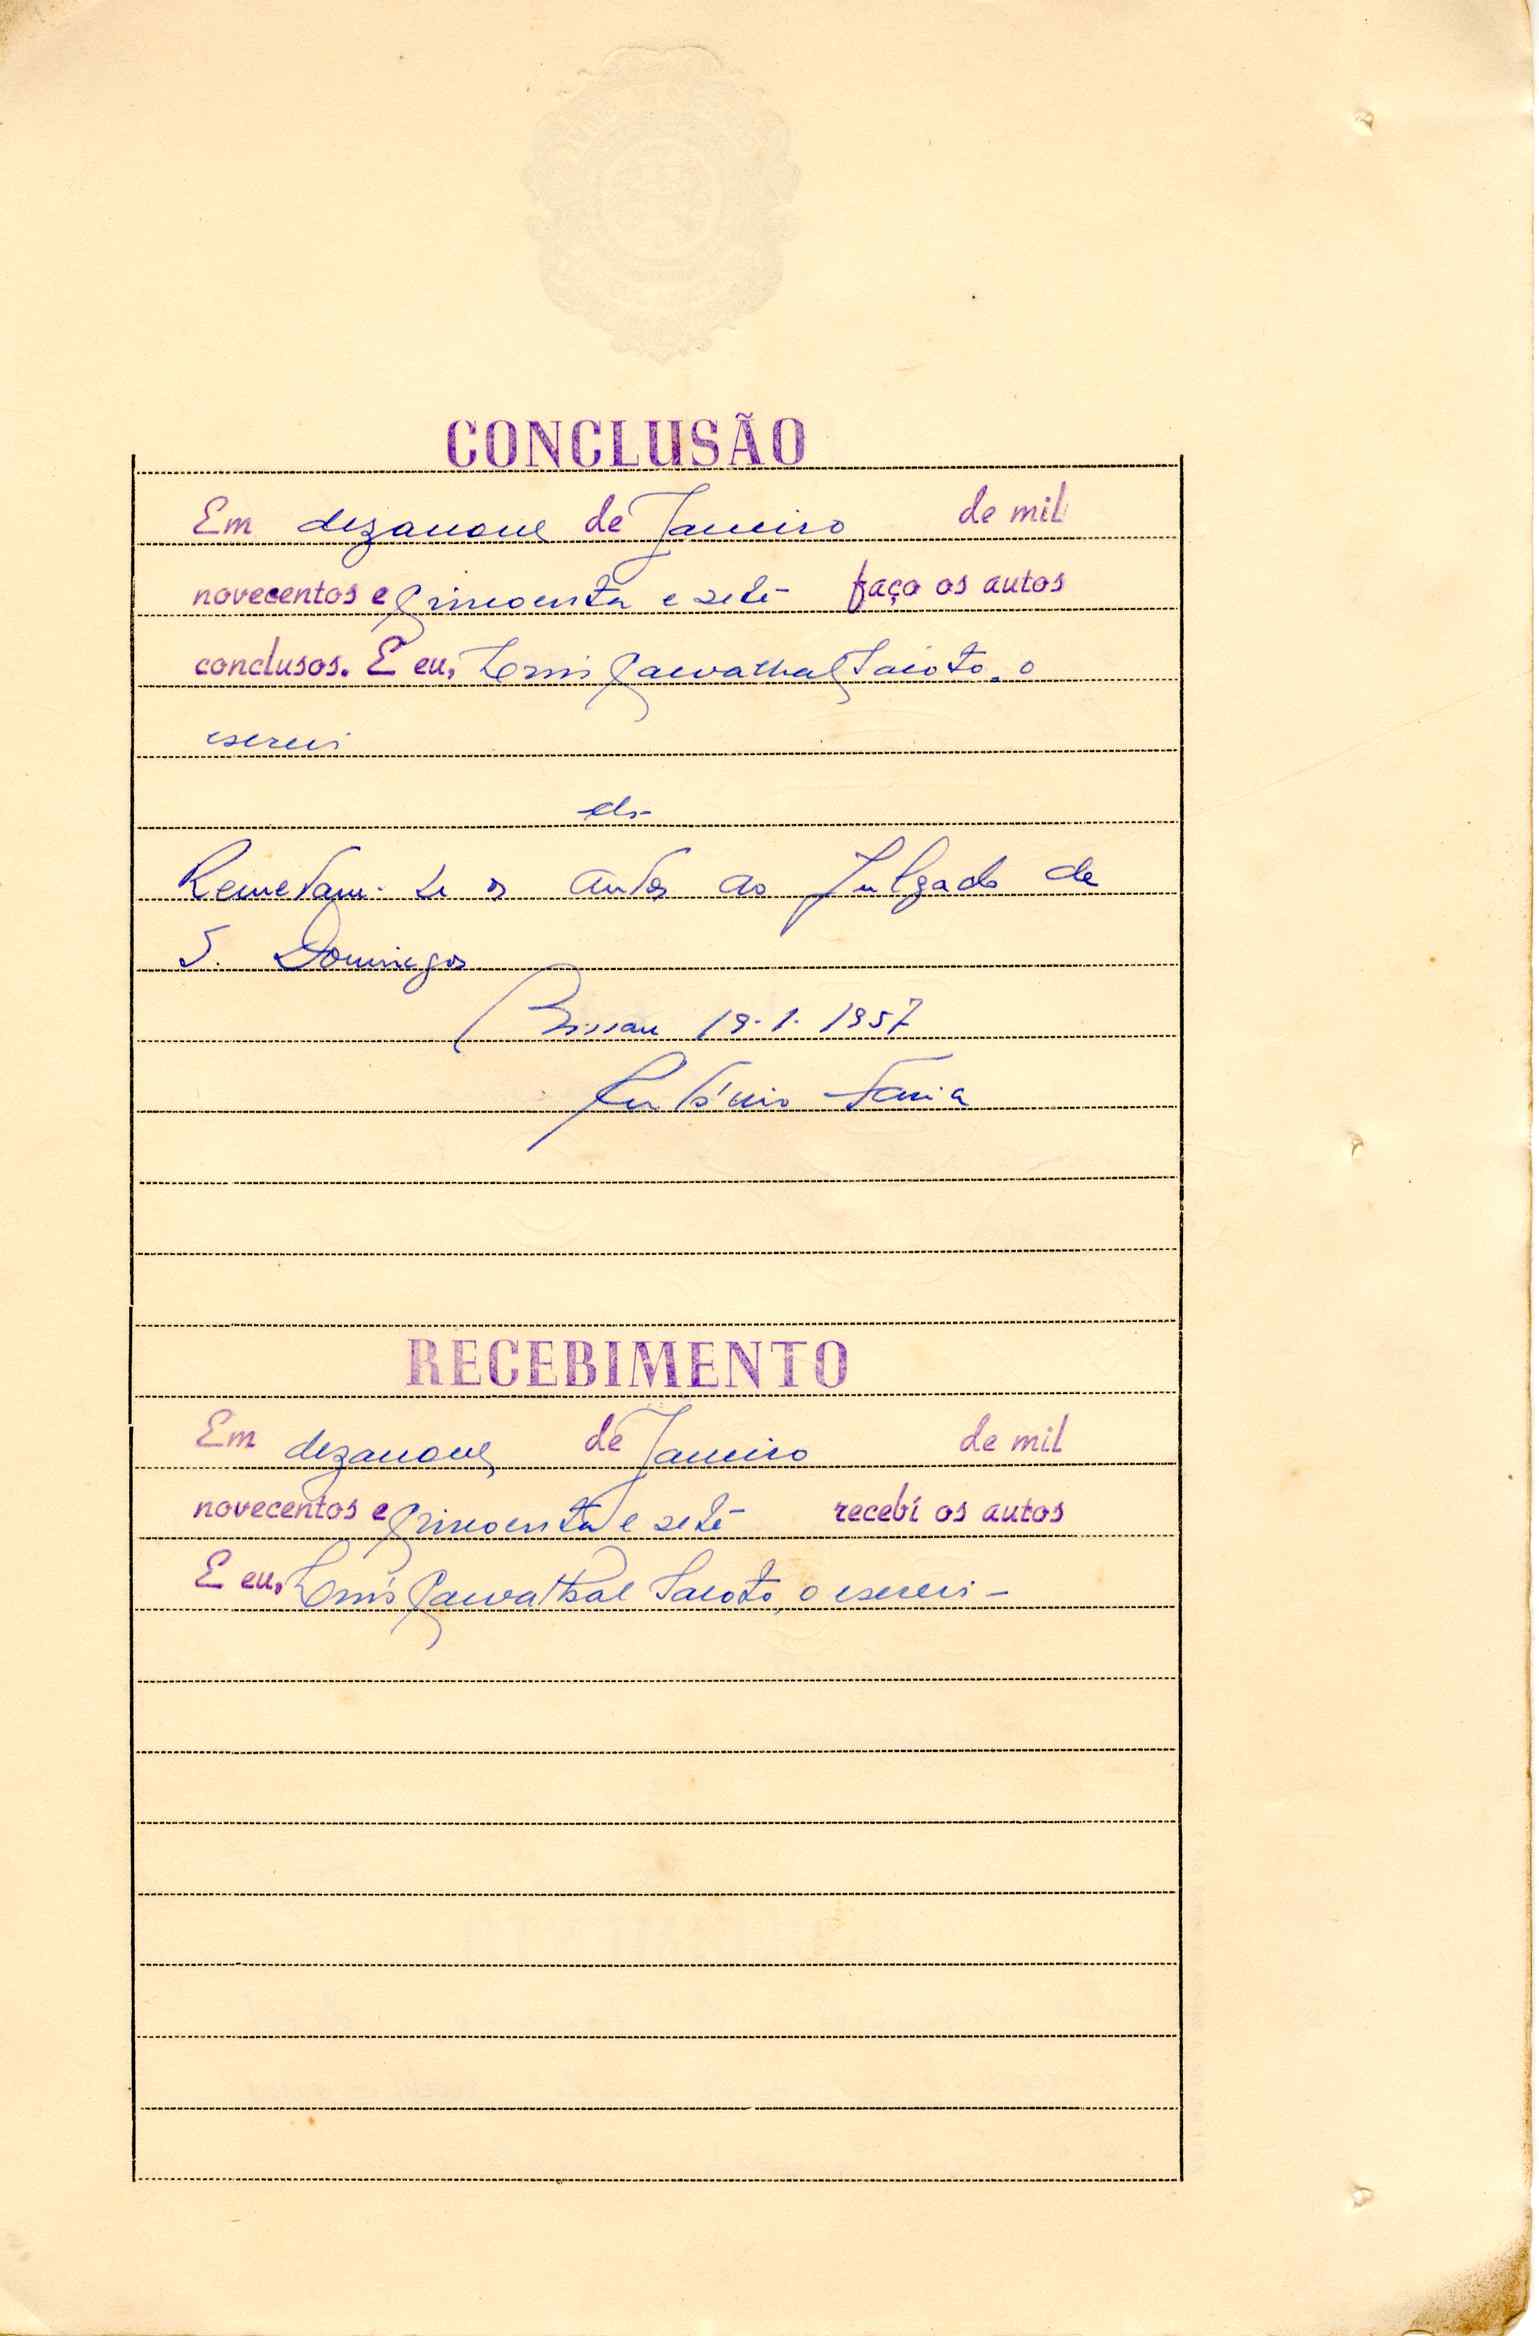 CONCLUSÃO
Em dezanove de Janeiro de mil
novecentos e cincoenta e sete faço os autos
conclusos. E eu, Luis Carvalhal Saioto, o
escrevi
cls-
Remetam-se os autos ao Julgado de
S. Domingos
Bissau 19-1-1957
António Faria
RECEBIMENTO
Em dezanove, de Janeiro de mil
novecentos e cincoenta e sete recebí os autos
E eu, Luis Carvalhal Saioto, o escrevi -